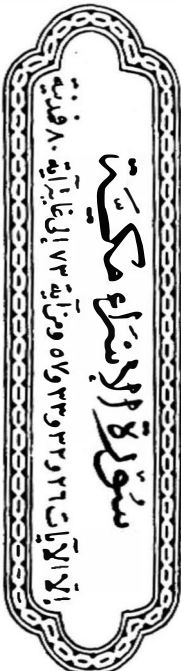 سُورَةُ الإِسْرَاءِ مَكِّيَّة
إلا الآيات ٢٦ و ٣٢ و ٣٣ و ٥٧ ومن آية ٧٣ إلى غاية آية ٨٠ فمدنية